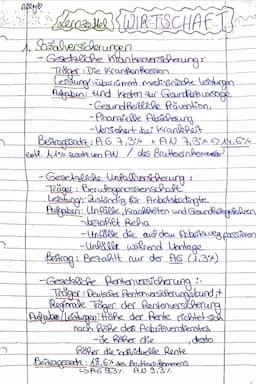 Lernzettel WIRTSCHAFT
1. Sozialversicherungen
- Gesetzliche Krankenversicherung:
Träger: Die Krankenkassen
Leistung: übernimmt medizinische Leistungen
Aufgaben: und Kosten zur Gesundheitsvorsorge
- Gesundheitliche Prävention,
- Finanzielle Absicherung
- Versichert bei Krankheit
Beitragssatz: AG 7,3% + AN 7,3% => 14,6%
evtl. 1,1% zusatz von AN / des Bruttoeinkommens
- Gesetzliche Unfallversicherung:
Träger: Berufsgenossenschaft
Leistung: Zuständig für Arbeitsbedingte
Aufgaben: Unfälle, Krankheiten und Gesundheitsgefahren,
- bezahlt Reha
- Unfälle die auf dem Arbeitsweg passieren
- Unfälle während Montage
Beitrag: Bezahlt nur der AG (1,3%)
- Gesetzliche Rentenversicherung:
Träger: Deutsche Rentenversicherung Bund, +
Regionale Träger der Rentenversicherung
Aufgaben/Leistungen: Höhe der Rente richtet sich
nach Höhe des Arbeitsverdienstes
- Je höher die , desto
höher die individuelle Rente
Beitragssatz: 18,6% des Bruttoeinkommens
↳ AG 9,3% AN 9,3%